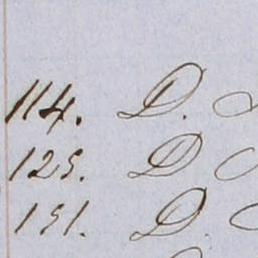 114. D.
125. D
151. D.